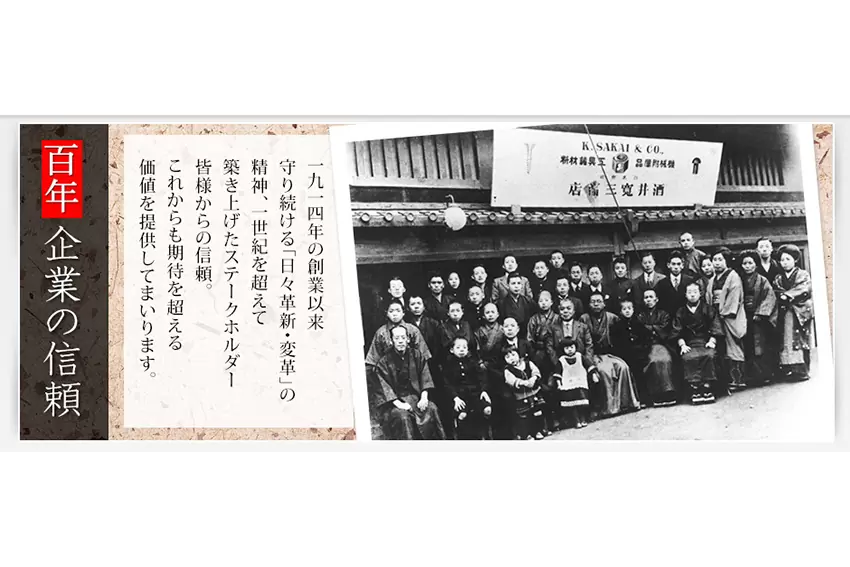 百年企業の信頼
一九一四年の創業以来
守り続ける「日々革新・変革」の
精神、一世紀を超えて
築き上げたステークホルダー
皆様からの信頼。
これからも期待を超える
価値を提供してまいります。
K. SAKAI & CO.,
店商三寛井酒